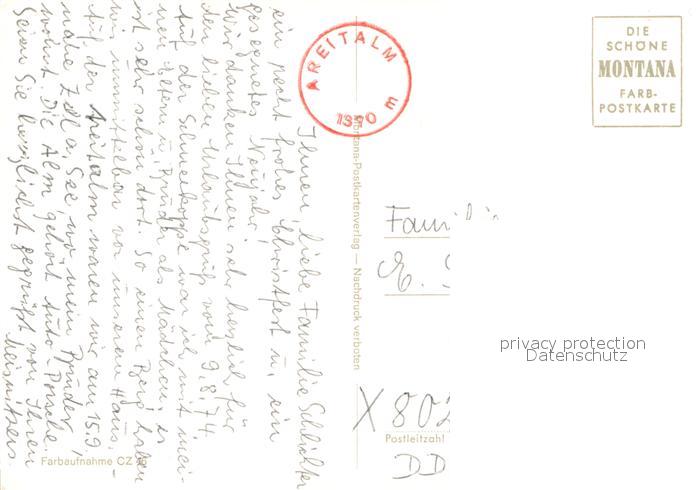 Ihnen, liebe Familie Schlichter
ein recht frohes Christfest u. ein
gesegnetes Neujahr!
Wir danken Ihnen sehr herzlich für
den lieben Urlaubsgruß vom 9.8.74.
Auf der Schneekoppe war ich mit mei-
nen Eltern u. Bruder als Mädchen, es
ist sehr schön dort. So einen Berg haben
wir unmittelbar vor unserem Haus. -
Auf der Areitalm waren wir am 15.9.
nahe Zell a. See, wo mein Bruder
wohnt. Die Alm gehört Auto-Porsche.
Seien Sie herzlichst gegrüßt von Ihren
AREITALM
1390
DIE
SCHÖNE
MONTANA
FARB-
POSTKARTE
Montana-Postkartenverlag — Nachdruck verboten
Famili
E.
privacy protection
Datenschutz
X 802
Postleitzahl
DD
Farbaufnahme CZ